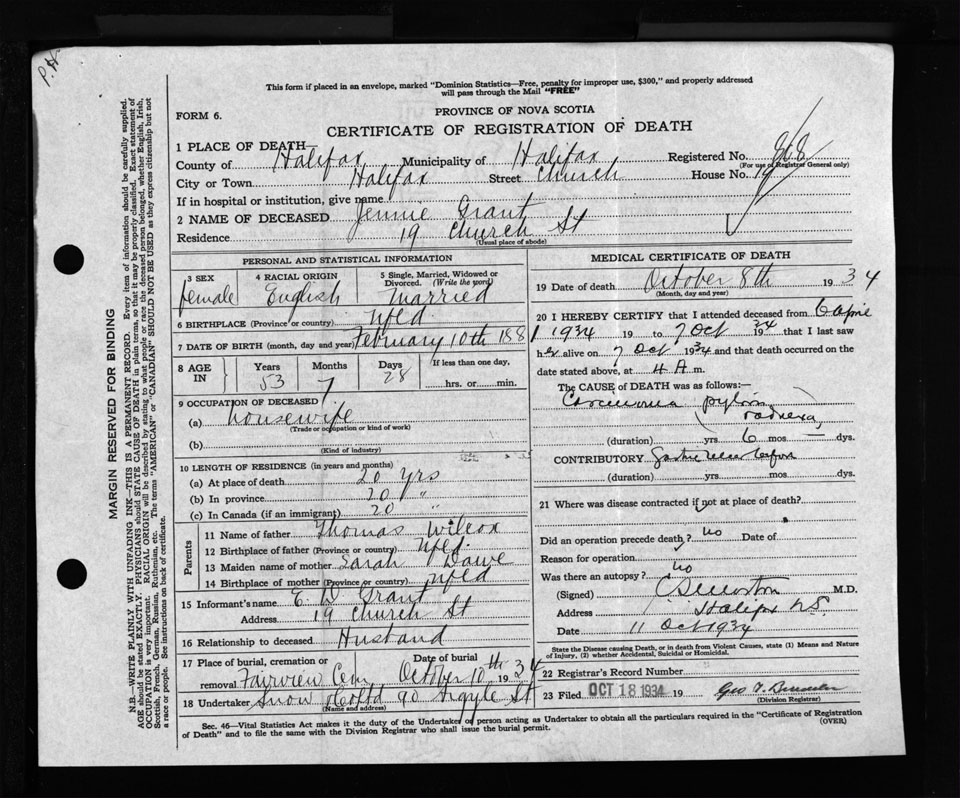 P.H.
This form if placed in an envelope, marked "Dominion Statistics—Free, penalty for improper use, $300," and properly addressed
will pass through the Mail "FREE"
PROVINCE OF NOVA SCOTIA
FORM 6.
CERTIFICATE OF REGISTRATION OF DEATH
1 PLACE OF DEATH
County of Halifax Municipality of Halifax Registered No. 868
(For use of Registrar General only)
City or Town Halifax Street Church House No. 19
If in hospital or institution, give name
2 NAME OF DECEASED Jennie Grant
Residence 19 Church St
(Usual place of abode)
PERSONAL AND STATISTICAL INFORMATION
3 SEX female 4 RACIAL ORIGIN English 5 Single, Married, Widowed or Divorced. (Write the word) Married
6 BIRTHPLACE (Province or country) Nfld
7 DATE OF BIRTH (month, day and year) February 10th 1881
8 AGE IN Years 53 Months 7 Days 28 If less than one day, hrs. or min.
9 OCCUPATION OF DECEASED
(a) housewife
(Trade or occupation or kind of work)
(b)
(Kind of industry)
10 LENGTH OF RESIDENCE (in years and months)
(a) At place of death 20 yrs
(b) In province 20 "
(c) In Canada (if an immigrant) 20 "
Parents
11 Name of father Thomas Wilcox
12 Birthplace of father (Province or country) Nfld
13 Maiden name of mother Sarah Dawe
14 Birthplace of mother (Province or country) Nfld
15 Informant's name E. W Grant
Address 19 Church St
16 Relationship to deceased Husband
17 Place of burial, cremation or removal Fairview Cem Date of burial October 10th 1934
18 Undertaker Snow & Co Ltd 90 Argyle St
(Name and address)
MEDICAL CERTIFICATE OF DEATH
19 Date of death October 8th 1934
(Month, day and year)
20 I HEREBY CERTIFY that I attended deceased from 6 April
1934 19 to 7 Oct 34 that I last saw
her alive on 7 Oct 1934 and that death occurred on the
date stated above, at 4 A m.
The CAUSE of DEATH was as follows:—
Carcinoma pylorus
(duration) yrs 6 mos — dys.
CONTRIBUTORY Gastric ulcer
(duration) yrs. mos. dys.
21 Where was disease contracted if not at place of death?
Did an operation precede death? no Date of
Reason for operation
Was there an autopsy? no
(Signed) M.D.
Address Halifax NS
Date 11 Oct 1934
State the Disease causing Death, or in death from Violent Causes, state (1) Means and Nature
of Injury, (2) whether Accidental, Suicidal or Homicidal.
22 Registrar's Record Number
23 Filed OCT 18 1934 19
(Division Registrar)
Sec. 46—Vital Statistics Act makes it the duty of the Undertaker or person acting as Undertaker to obtain all the particulars required in the "Certificate of Registration
of Death" and to file the same with the Division Registrar who shall issue the burial permit. (OVER)
MARGIN RESERVED FOR BINDING
N.B.—WRITE PLAINLY WITH UNFADING INK—THIS IS A PERMANENT RECORD. Every item of information should be carefully supplied.
AGE should be stated EXACTLY. PHYSICIANS should STATE CAUSE OF DEATH in plain terms, so that it may be properly classified. Exact statement of
OCCUPATION is very important. RACIAL ORIGIN will be described by stating to what people or race the deceased person belonged, whether English, Irish,
Scottish, French, German, Russian, Ruthenian, etc. The terms "AMERICAN" or "CANADIAN" SHOULD NOT BE USED as they express citizenship but not
a race or people. See instructions on back of certificate.